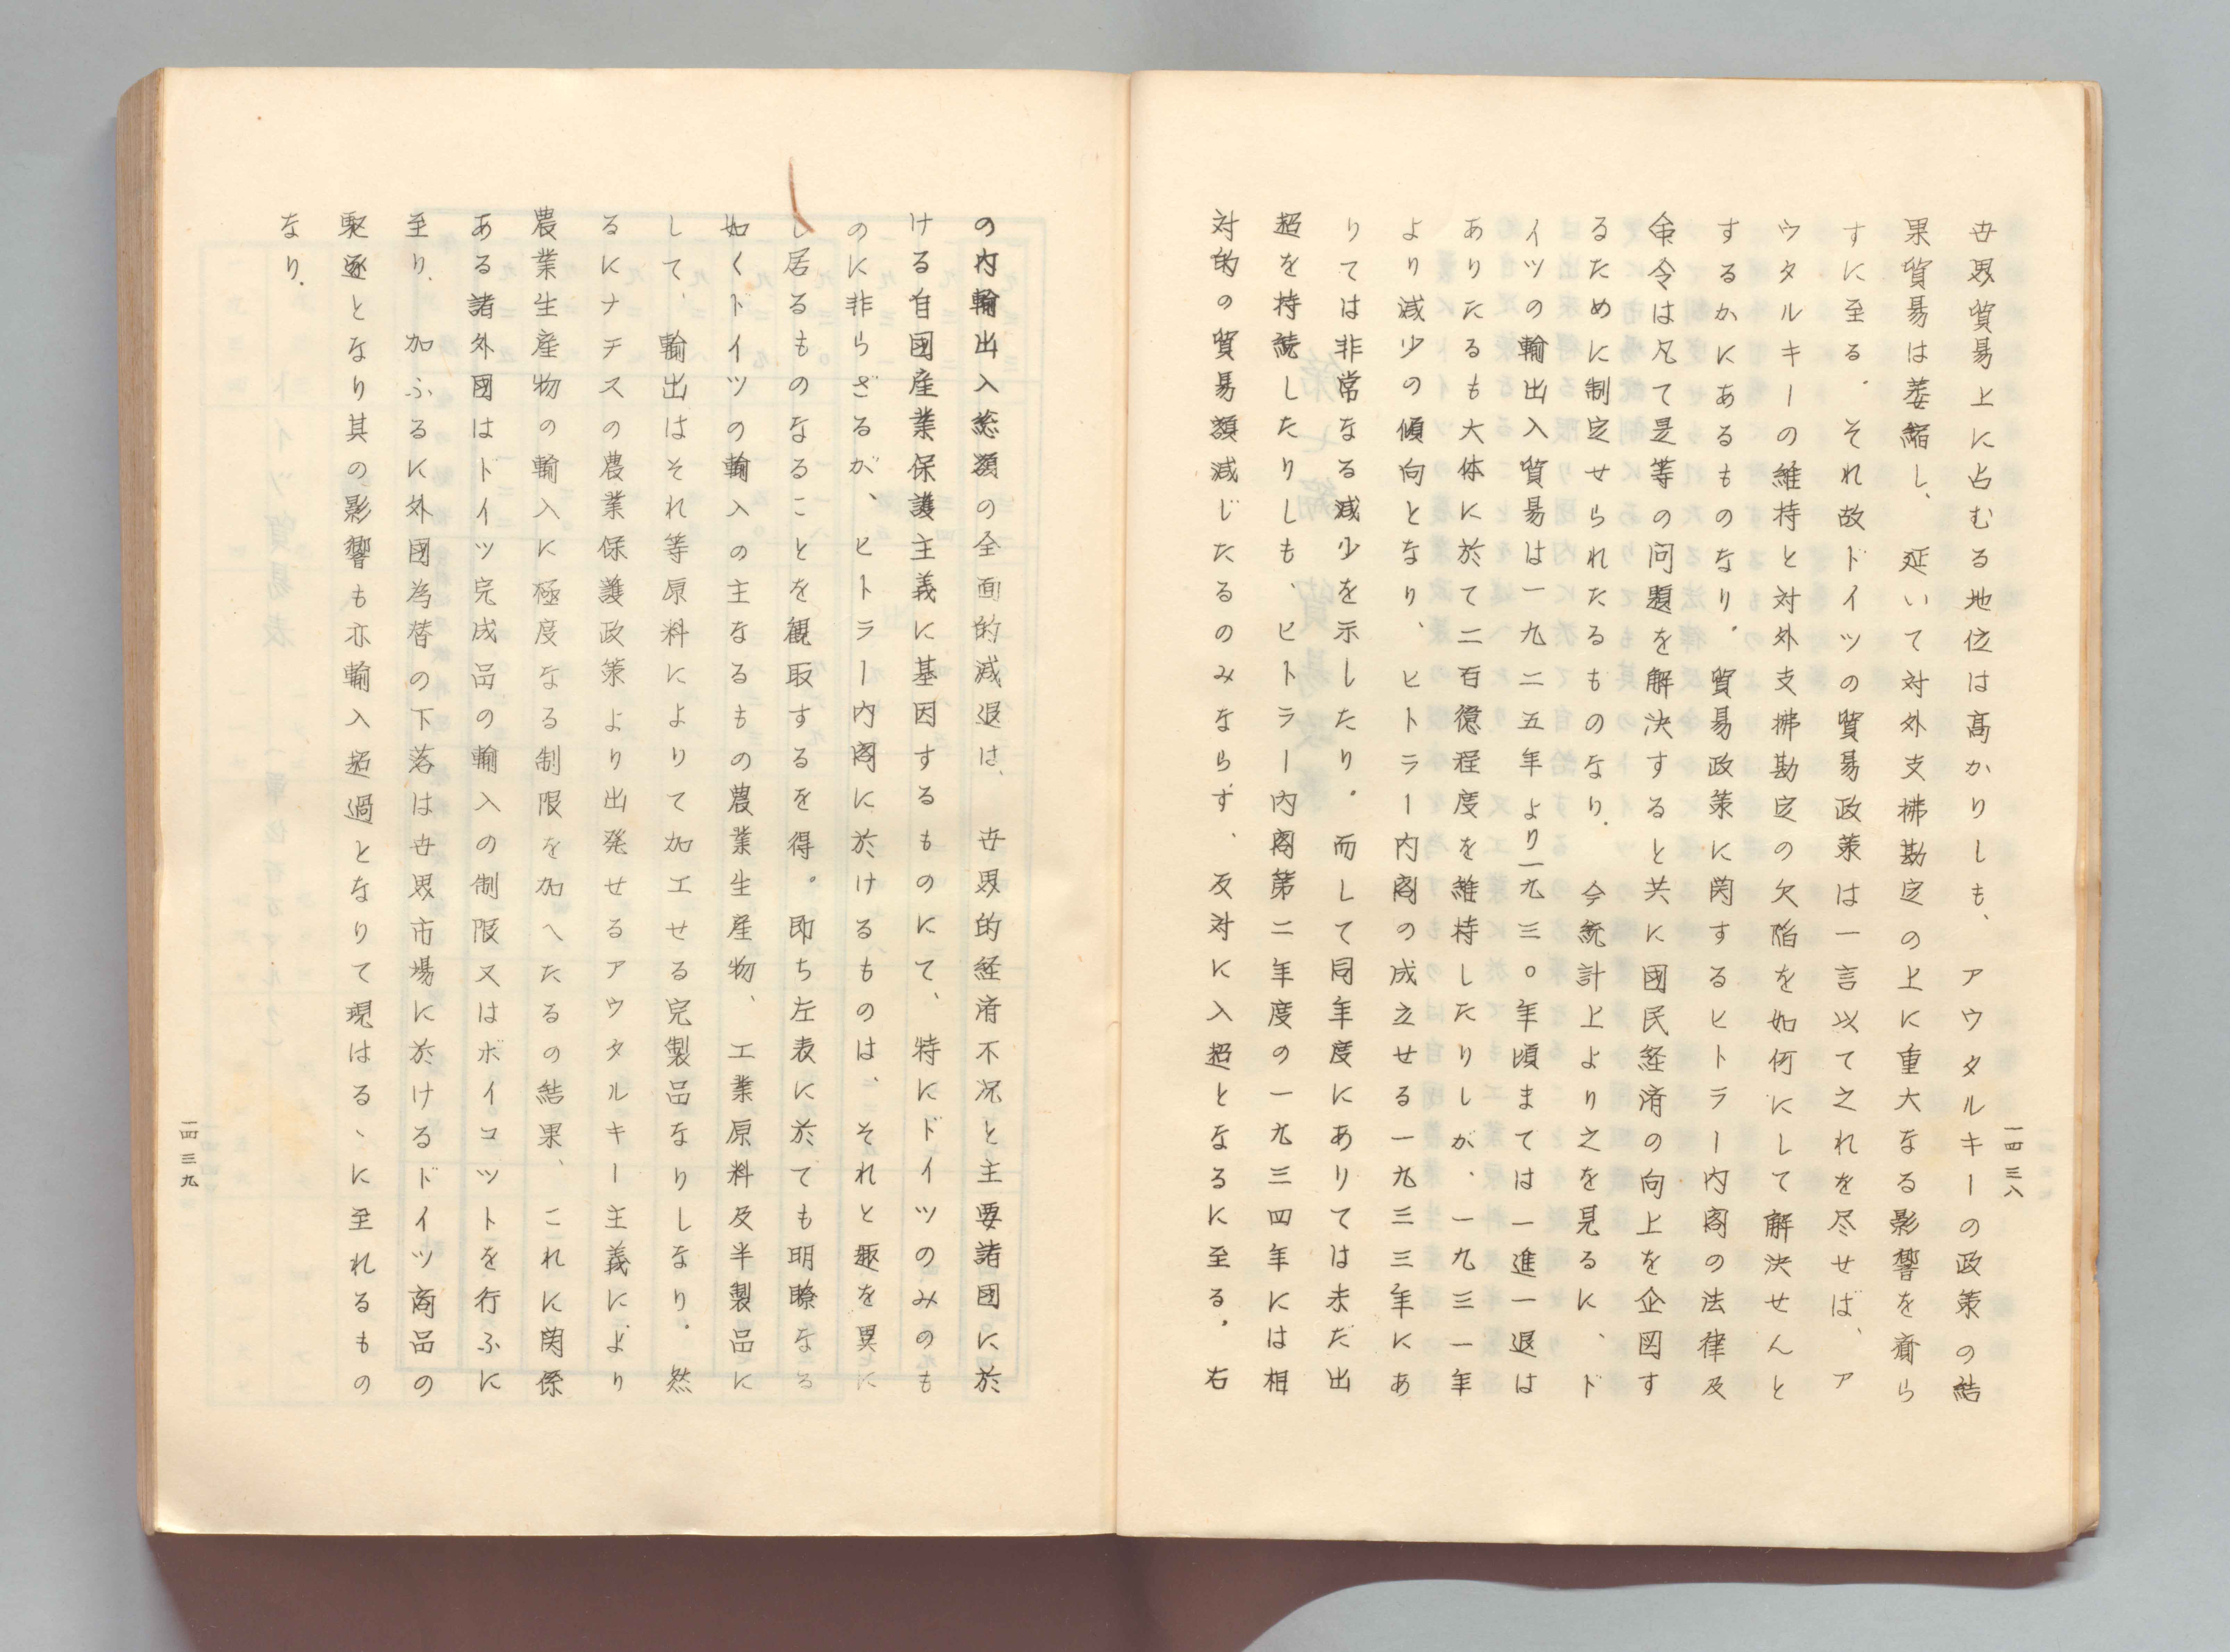 一四三八
世界貿易上に占むる地位は高かりしも、アウタルキーの政策の結
果貿易は萎縮し、延いて対外支拂勘定の上に重大なる影響を齎ら
すに至る．それ故ドイツの貿易政策は一言以て之れを尽せば、ア
ウタルキーの維持と対外支拂勘定の欠陥を如何にして解決せんと
するかにあるものなり．貿易政策に関するヒトラー内閣の法律及
命令は凡て是等の問題を解決すると共に國民経済の向上を企図す
るために制定せられたるものなり．今統計上より之を見るに、ド
イツの輸出入貿易は一九二五年より一九三〇年頃までは一進一退は
ありたるも大体に於て二百億程度を維持したりしが、一九三一年
より減少の傾向となり、ヒトラー内閣の成立せる一九三三年にあ
りては非常なる減少を示したり．而して同年度にありては未だ出
超を持続したりしも、ヒトラー内閣第二年度の一九三四年には相
対的の貿易額減じたるのみならず、反対に入超となるに至る．右
の内輸出入総額の全面的減退は、世界的経済不況と主要諸國に於
ける自國産業保護主義に基因するものにて、特にドイツのみのも
のに非らざるが、ヒトラー内閣に於けるものは、それと趣を異に
し居るものなることを観取するを得。即ち左表に於ても明瞭なる
如くドイツの輸入の主なるもの農業生産物、工業原料及半製品に
して、輸出はそれ等原料によりて加工せる完製品なりしなり．然
るにナチスの農業保護政策より出発せるアウタルキー主義により
農業生産物の輸入に極度なる制限を加へたるの結果、これに関係
ある諸外國はドイツ完成品の輸入の制限又はボイコツトを行ふに
至り、加ふるに外國為替の下落は世界市場に於けるドイツ商品の
駆逐となり其の影響も亦輸入超過となりて現はるゝに至れるもの
なり．
一四三九